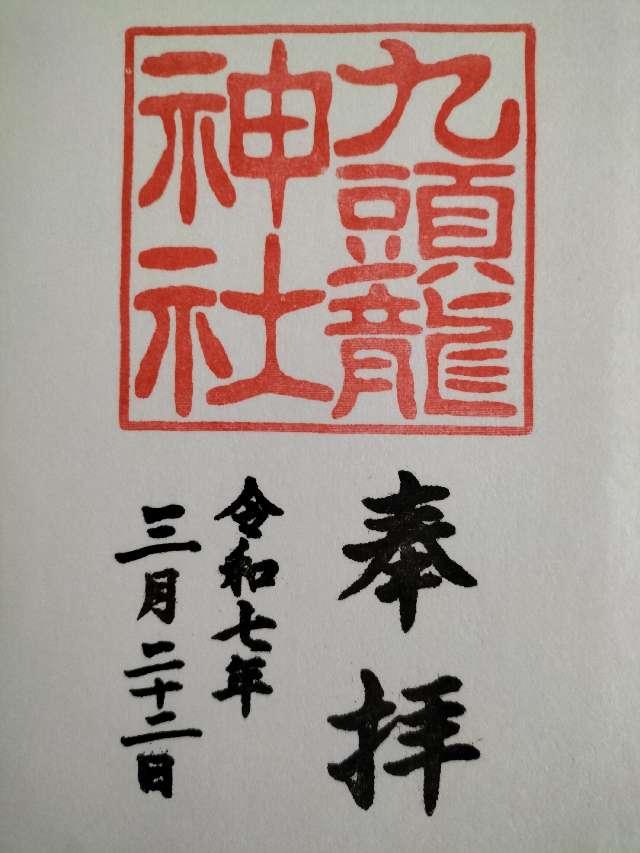 九頭龍
神社
奉拝
令和七年
三月二十二日